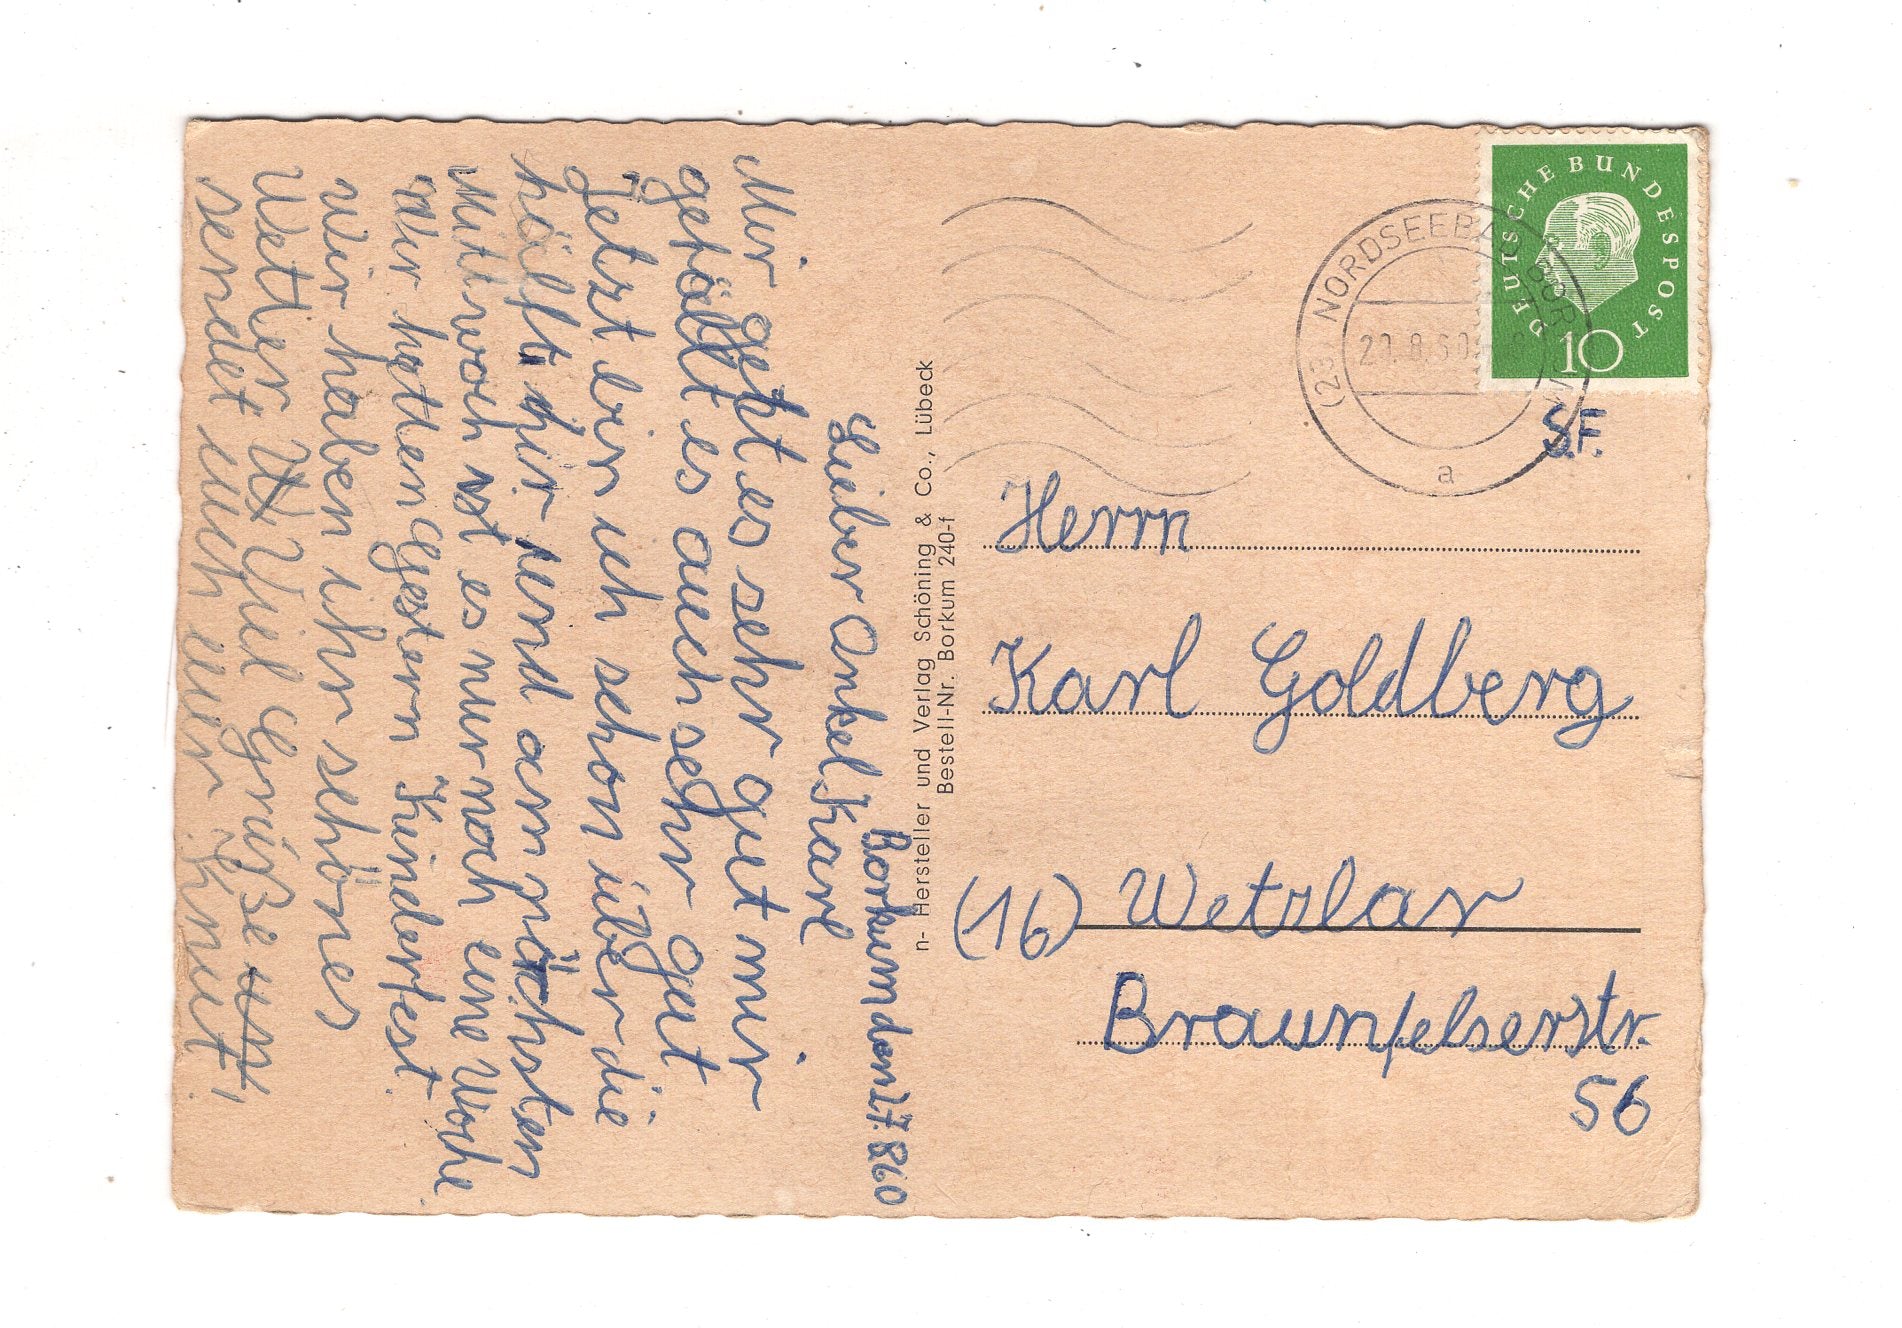 Borkum den 27.860
Lieber Onkel Karl
Mir geht es sehr gut mir
gefällt es auch sehr gut
Jetzt bin ich schon über die
hälfte hir und am nächsten
Mittwoch ist es nur noch eine Woche
Wir hatten Gestern Kinderfest.
Wir haben ihr schönes
Wetter. Viel Grüße
sendet euch euer Knut!
n- Hersteller und Verlag Schöning & Co., Lübeck
Bestell-Nr. Borkum 240-f
DEUTSCHE BUNDESPOST
10
(23) NORDSEEBAD BORKUM
a
S.F.
Herrn
Karl Goldberg
(16) Wetzlar
Braunfelserstr.
56